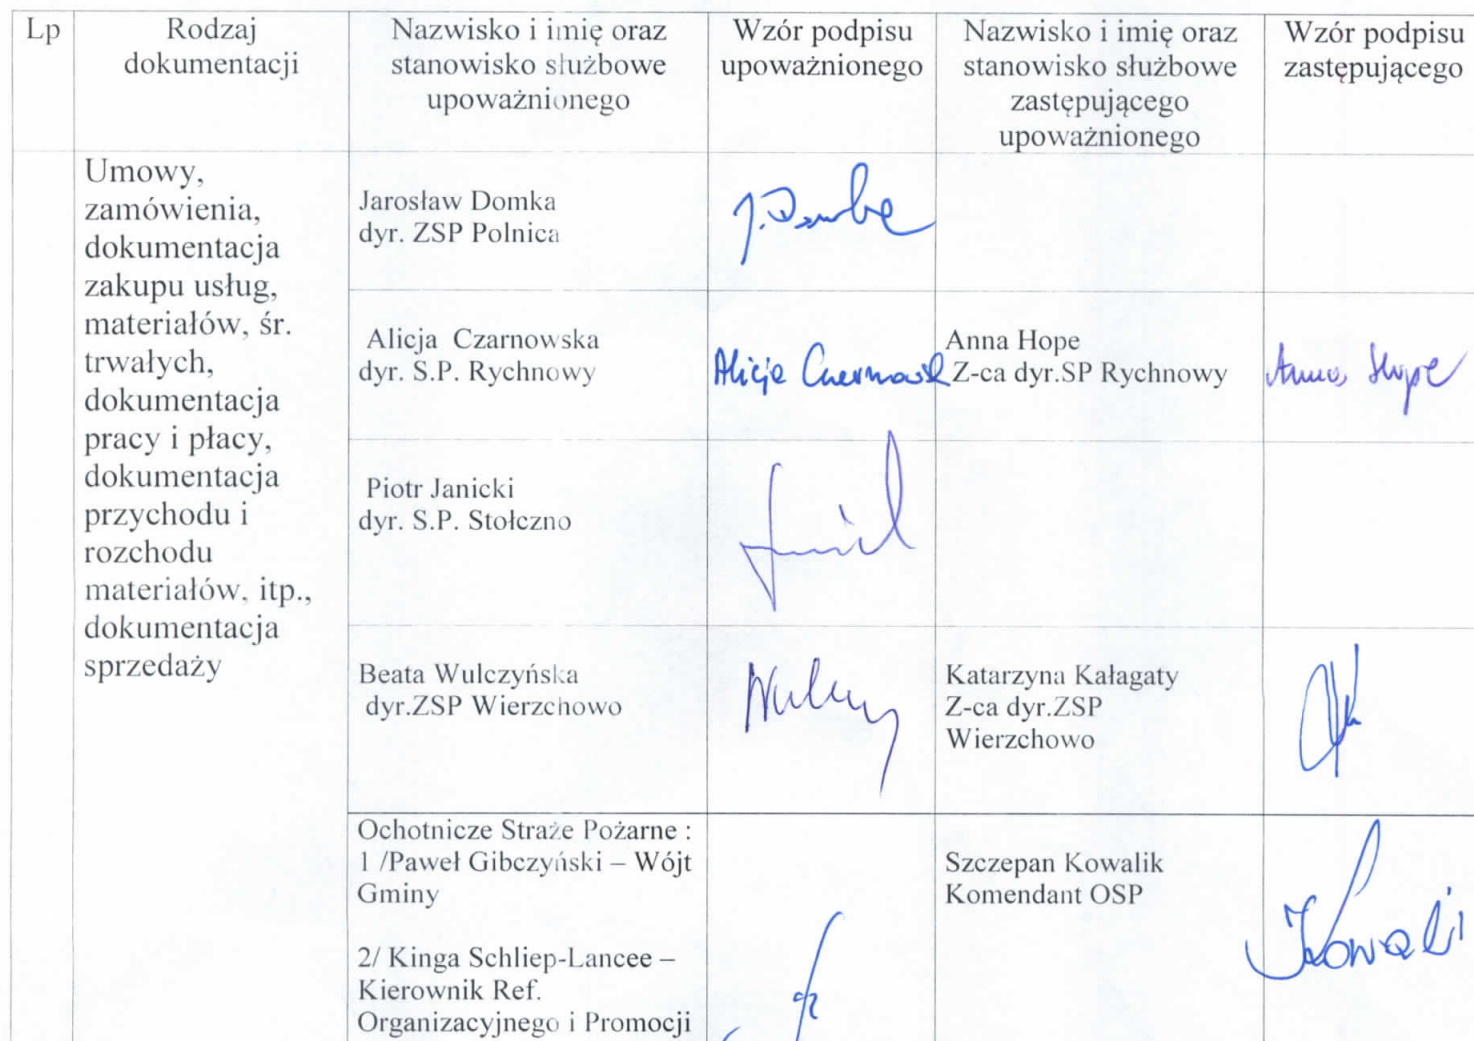 Lp
Rodzaj
dokumentacji
Nazwisko i imię oraz
stanowisko służbowe
upoważnionego
Wzór podpisu
upoważnionego
Nazwisko i imię oraz
stanowisko służbowe
zastępującego
upoważnionego
Wzór podpisu
zastępującego
Umowy,
zamówienia,
dokumentacja
zakupu usług,
materiałów, śr.
trwałych,
dokumentacja
pracy i płacy,
dokumentacja
przychodu i
rozchodu
materiałów, itp.,
dokumentacja
sprzedaży
Jarosław Domka
dyr. ZSP Polnica
Alicja Czarnowska
dyr. S.P. Rychnowy
Alicja
Anna Hope
Z-ca dyr.SP Rychnowy
Anna Hope
Piotr Janicki
dyr. S.P. Stołczno
Beata Wulczyńska
dyr.ZSP Wierzchowo
Katarzyna Kałagaty
Z-ca dyr.ZSP
Wierzchowo
Ochotnicze Straże Pożarne :
1 /Paweł Gibczyński – Wójt
Gminy
2/ Kinga Schliep-Lancee –
Kierownik Ref.
Organizacyjnego i Promocji
Szczepan Kowalik
Komendant OSP